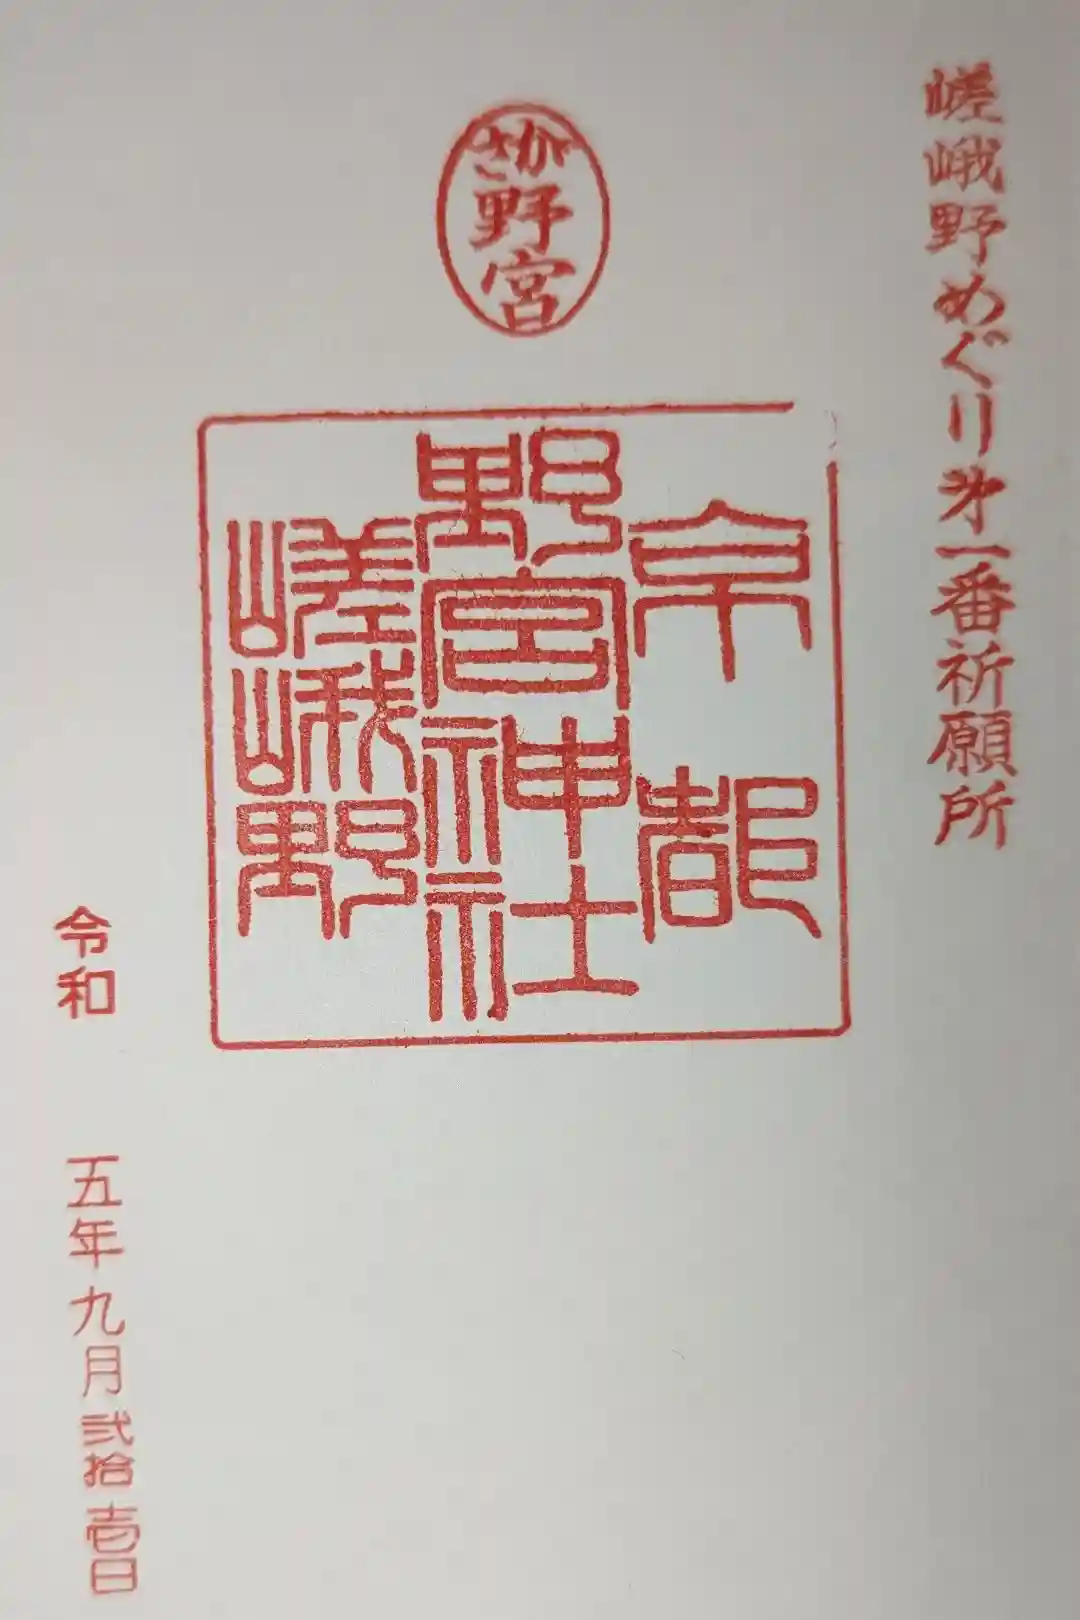 嵯峨野めぐり㐧一番祈願所
さが
野
宮
京都
野宮神社
嵯峨野
令和 五年九月弐拾壱日